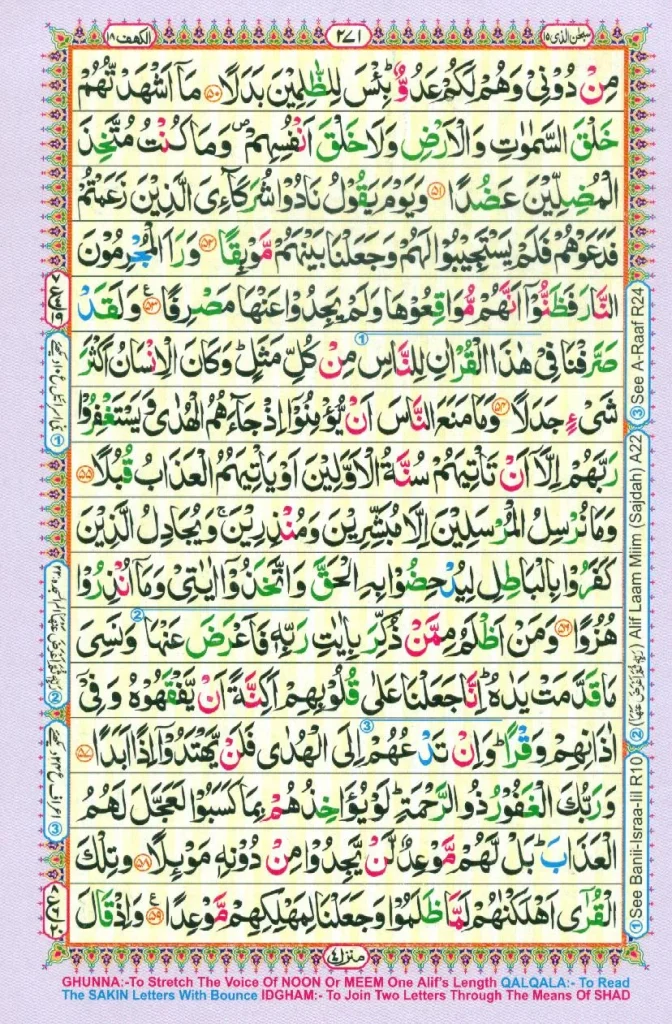 سبحٰن الذی ١٥
٢٧١
الكهف ١٨
مِنْ دُوْنِیْ وَهُمْ لَكُمْ عَدُوٌّ ؕ بِئْسَ لِلظّٰلِمِیْنَ بَدَلًا ﴿٥٠﴾ مَاۤ اَشْهَدْتُّهُمْ
خَلْقَ السَّمٰوٰتِ وَالْاَرْضِ وَلَا خَلْقَ اَنْفُسِهِمْ ۪ وَمَا كُنْتُ مُتَّخِذَ
الْمُضِلِّیْنَ عَضُدًا ﴿٥١﴾ وَیَوْمَ یَقُوْلُ نَادُوْا شُرَكَآءِیَ الَّذِیْنَ زَعَمْتُمْ
فَدَعَوْهُمْ فَلَمْ یَسْتَجِیْبُوْا لَهُمْ وَجَعَلْنَا بَیْنَهُمْ مَّوْبِقًا ﴿٥٢﴾ وَرَاَ الْمُجْرِمُوْنَ
النَّارَ فَظَنُّوْۤا اَنَّهُمْ مُّوَاقِعُوْهَا وَلَمْ یَجِدُوْا عَنْهَا مَصْرِفًا ﴿٥٣﴾ ع وَلَقَدْ
صَرَّفْنَا فِیْ هٰذَا الْقُرْاٰنِ لِلنَّاسِ مِنْ كُلِّ مَثَلٍ ؕ وَكَانَ الْاِنْسَانُ اَكْثَرَ
شَیْءٍ جَدَلًا ﴿٥٤﴾ وَمَا مَنَعَ النَّاسَ اَنْ یُّؤْمِنُوْۤا اِذْ جَآءَهُمُ الْهُدٰی وَیَسْتَغْفِرُوْا
رَبَّهُمْ اِلَّاۤ اَنْ تَاْتِیَهُمْ سُنَّةُ الْاَوَّلِیْنَ اَوْ یَاْتِیَهُمُ الْعَذَابُ قُبُلًا ﴿٥٥﴾
وَمَا نُرْسِلُ الْمُرْسَلِیْنَ اِلَّا مُبَشِّرِیْنَ وَمُنْذِرِیْنَ ۚ وَیُجَادِلُ الَّذِیْنَ
كَفَرُوْا بِالْبَاطِلِ لِیُدْحِضُوْا بِهِ الْحَقَّ وَاتَّخَذُوْۤا اٰیٰتِیْ وَمَاۤ اُنْذِرُوْا
هُزُوًا ﴿٥٦﴾ وَمَنْ اَظْلَمُ مِمَّنْ ذُكِّرَ بِاٰیٰتِ رَبِّهٖ فَاَعْرَضَ عَنْهَا وَنَسِیَ
مَا قَدَّمَتْ یَدٰهُ ؕ اِنَّا جَعَلْنَا عَلٰی قُلُوْبِهِمْ اَكِنَّةً اَنْ یَّفْقَهُوْهُ وَفِیْۤ
اٰذَانِهِمْ وَقْرًا ؕ وَاِنْ تَدْعُهُمْ اِلَی الْهُدٰی فَلَنْ یَّهْتَدُوْۤا اِذًا اَبَدًا ﴿٥٧﴾
وَرَبُّكَ الْغَفُوْرُ ذُو الرَّحْمَةِ ؕ لَوْ یُؤَاخِذُهُمْ بِمَا كَسَبُوْا لَعَجَّلَ لَهُمُ
الْعَذَابَ ؕ بَلْ لَّهُمْ مَّوْعِدٌ لَّنْ یَّجِدُوْا مِنْ دُوْنِهٖ مَوْئِلًا ﴿٥٨﴾ وَتِلْكَ
الْقُرٰۤی اَهْلَكْنٰهُمْ لَمَّا ظَلَمُوْا وَجَعَلْنَا لِمَهْلِكِهِمْ مَّوْعِدًا ﴿٥٩﴾ ع وَاِذْ قَالَ
منزل ٤
① See Banii-Israa-iil R10
② (رَبِّهٖ فَاَعْرَضَ عَنْهَا) Alif Laam Miim (Sajdah) A22
③ See A-Raaf R24
GHUNNA:-To Stretch The Voice Of NOON Or MEEM One Alif's Length QALQALA:- To Read
The SAKIN Letters With Bounce IDGHAM:- To Join Two Letters Through The Means Of SHAD